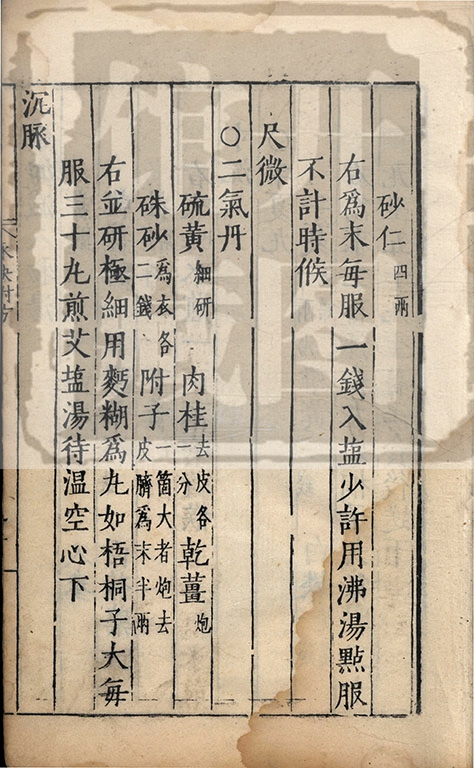 砂仁四兩
右爲末每服一錢入塩少許用沸湯點服
不計時候
尺微
○二氣丹
硫黄細研 肉桂去皮各一分 乾薑炮
硃砂爲衣各二錢 附子一箇大者炮去皮臍爲末半兩
右並研極細用麪糊爲丸如梧桐子大每
服三十丸煎艾塩湯待温空心下
沉脈